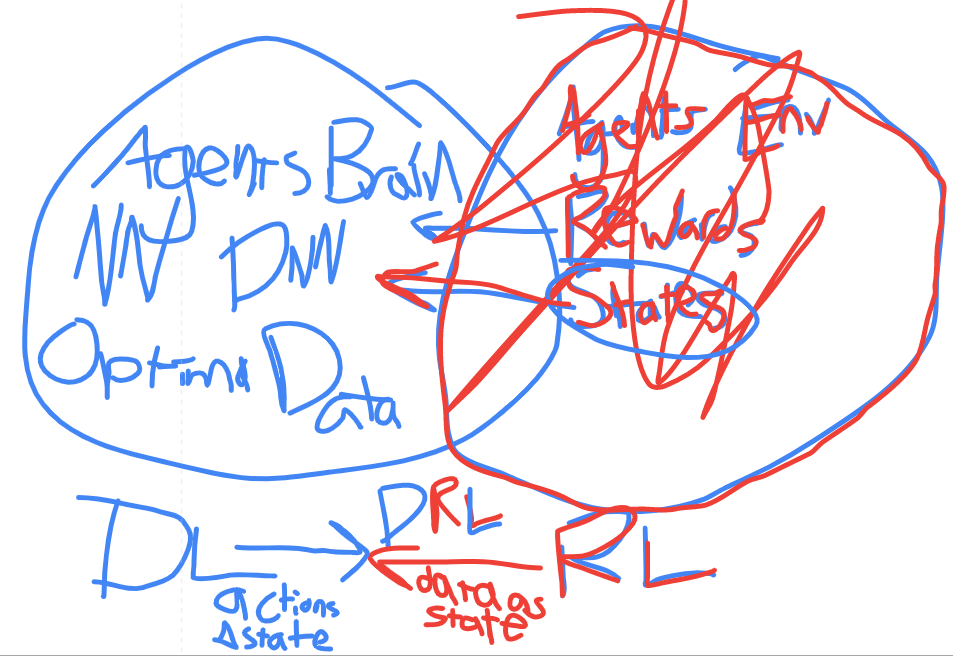 Agents Brain
NN DNN
Optimal Data
Agents Env
Rewards
States
DL
DRL
RL
actions
Δstate
data as
state